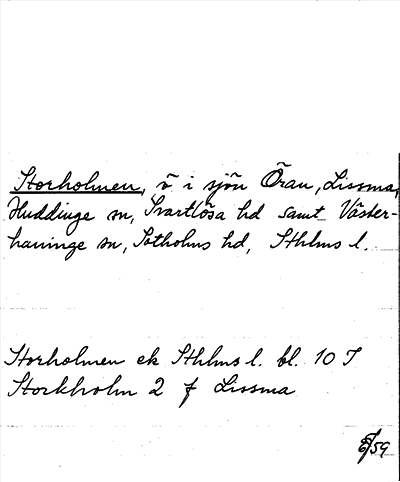 Storholmen, ö i sjön Öran, Lissma,
Huddinge sn, Svartlösa hd samt Väster-
haninge sn, Sotholms hd, Sthlms l.
Storholmen ek Sthlms l. bl. 10 I
Stockholm 2 f Lissma
/59